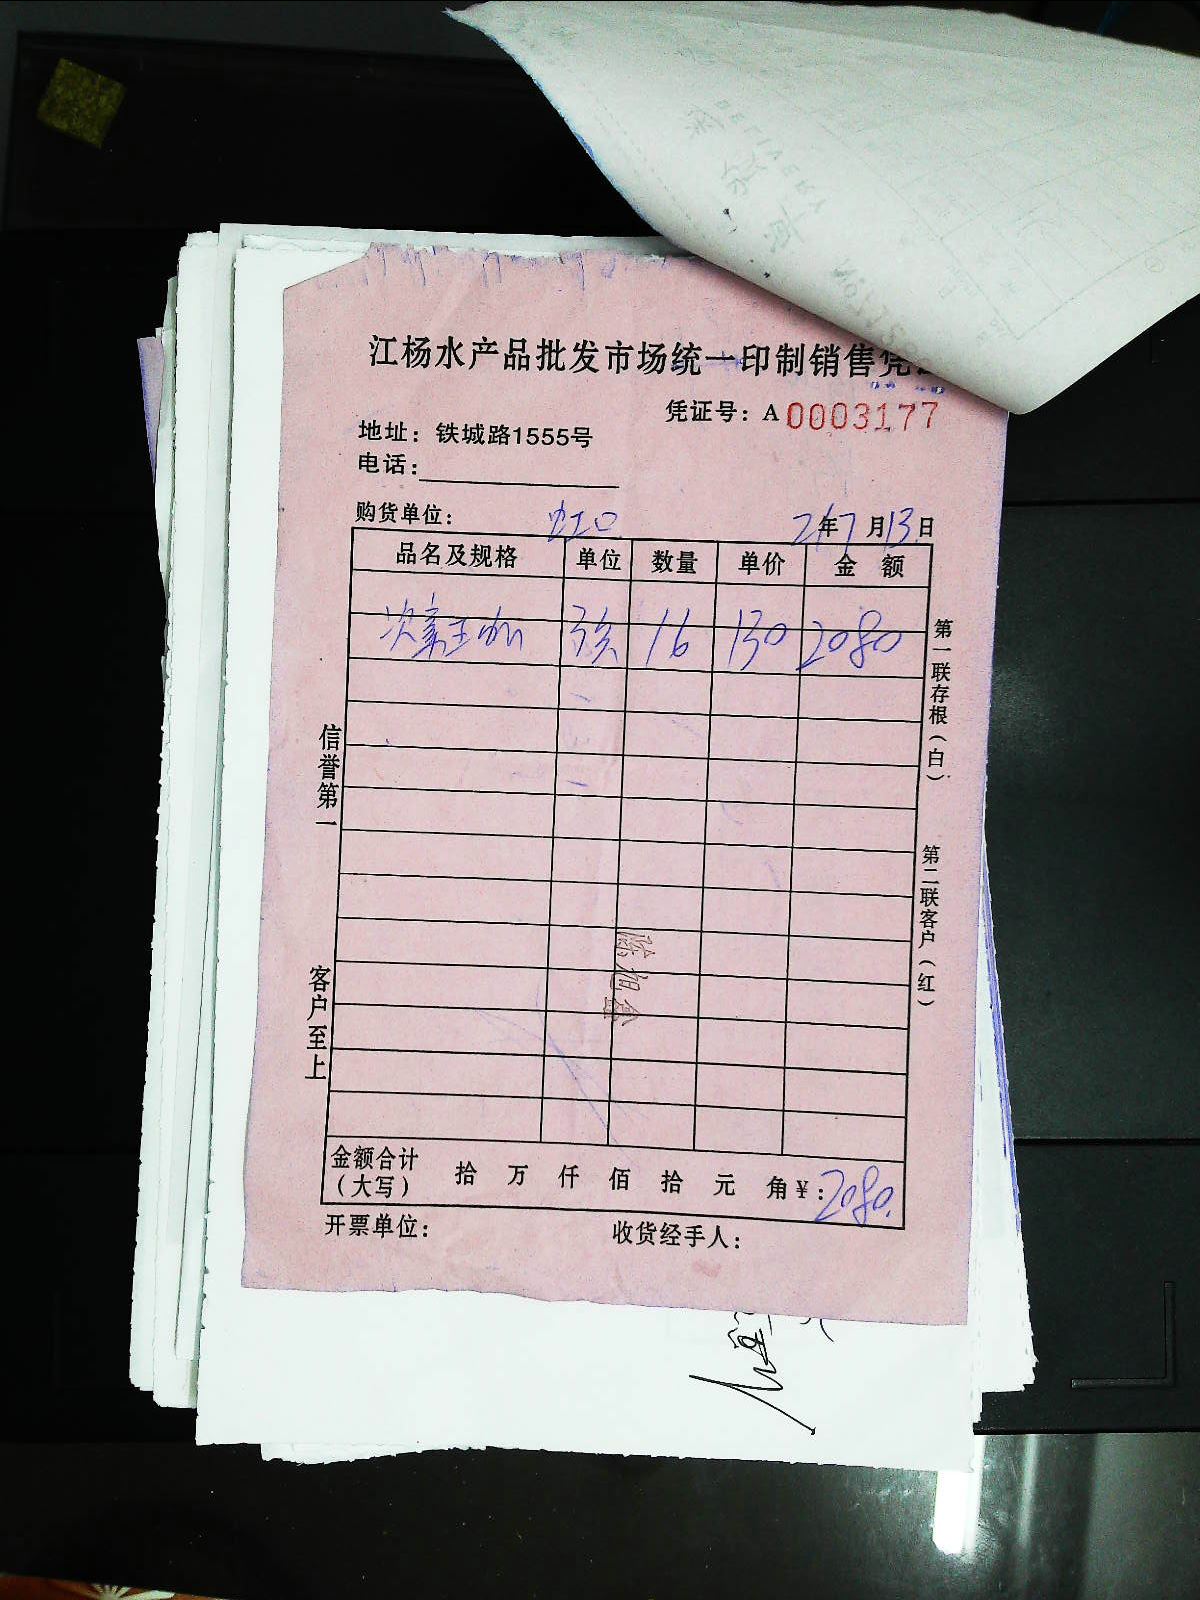 江杨水产品批发市场统一印制销售凭
凭证号：A 0003177
地址：铁城路1555号
电话：
购货单位： 虹口 21年7月13日
品名及规格 单位 数量 单价 金 额
16 130 2080
信誉第一
客户至上
第一联存根（白）
第二联客户（红）
金额合计（大写） 拾 万 仟 佰 拾 元 角 ¥：2080.
开票单位：
收货经手人：